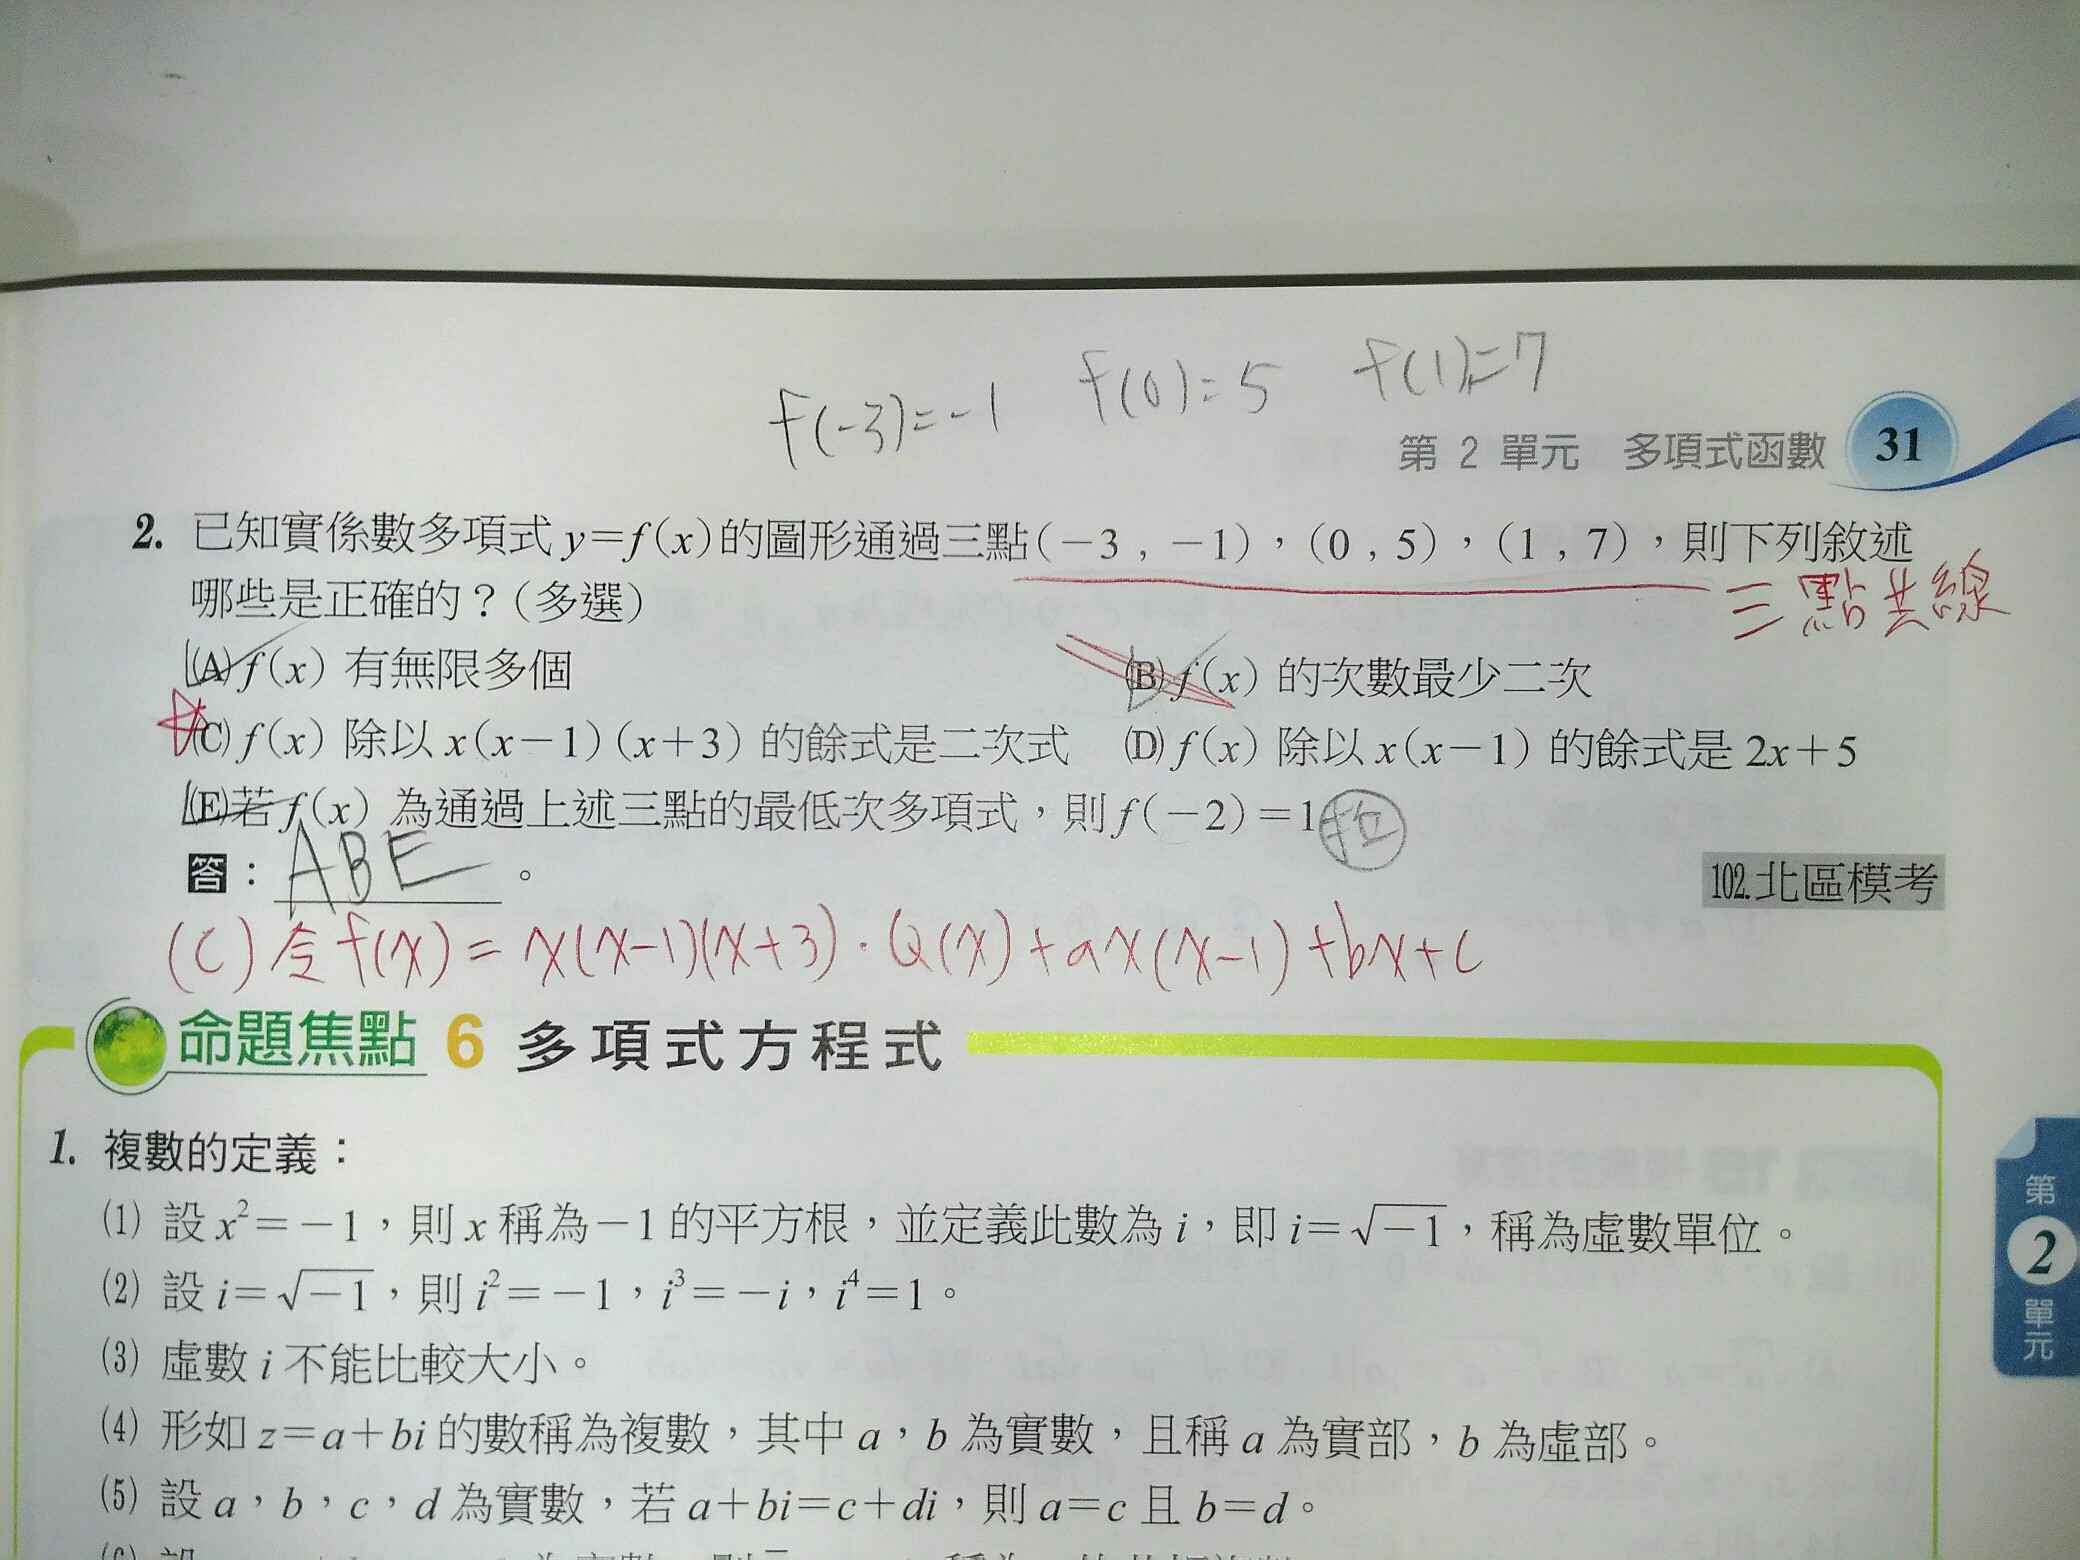 f(-3)=-1 f(0)=5 f(1)=7
第 2 單元 多項式函數 31
2. 已知實係數多項式 y=f(x)的圖形通過三點(-3,-1),(0,5),(1,7),則下列敘述
三點共線
哪些是正確的?(多選)
(A) f(x) 有無限多個 (B) f(x) 的次數最少二次
(C) f(x) 除以 x(x-1)(x+3) 的餘式是二次式 (D) f(x) 除以 x(x-1) 的餘式是 2x+5
(E)若 f(x) 為通過上述三點的最低次多項式,則 f(-2)=1
答: ABE 。
102.北區模考
(C)令f(x)=x(x-1)(x+3)·Q(x)+ax(x-1)+bx+c
命題焦點 6 多項式方程式
1. 複數的定義:
(1) 設 x²=-1,則 x 稱為-1 的平方根,並定義此數為 i,即 i=√-1,稱為虛數單位。
(2) 設 i=√-1,則 i²=-1,i³=-i,i⁴=1。
(3) 虛數 i 不能比較大小。
(4) 形如 z=a+bi 的數稱為複數,其中 a,b 為實數,且稱 a 為實部,b 為虛部。
(5) 設 a,b,c,d 為實數,若 a+bi=c+di,則 a=c 且 b=d。
第
2
單
元